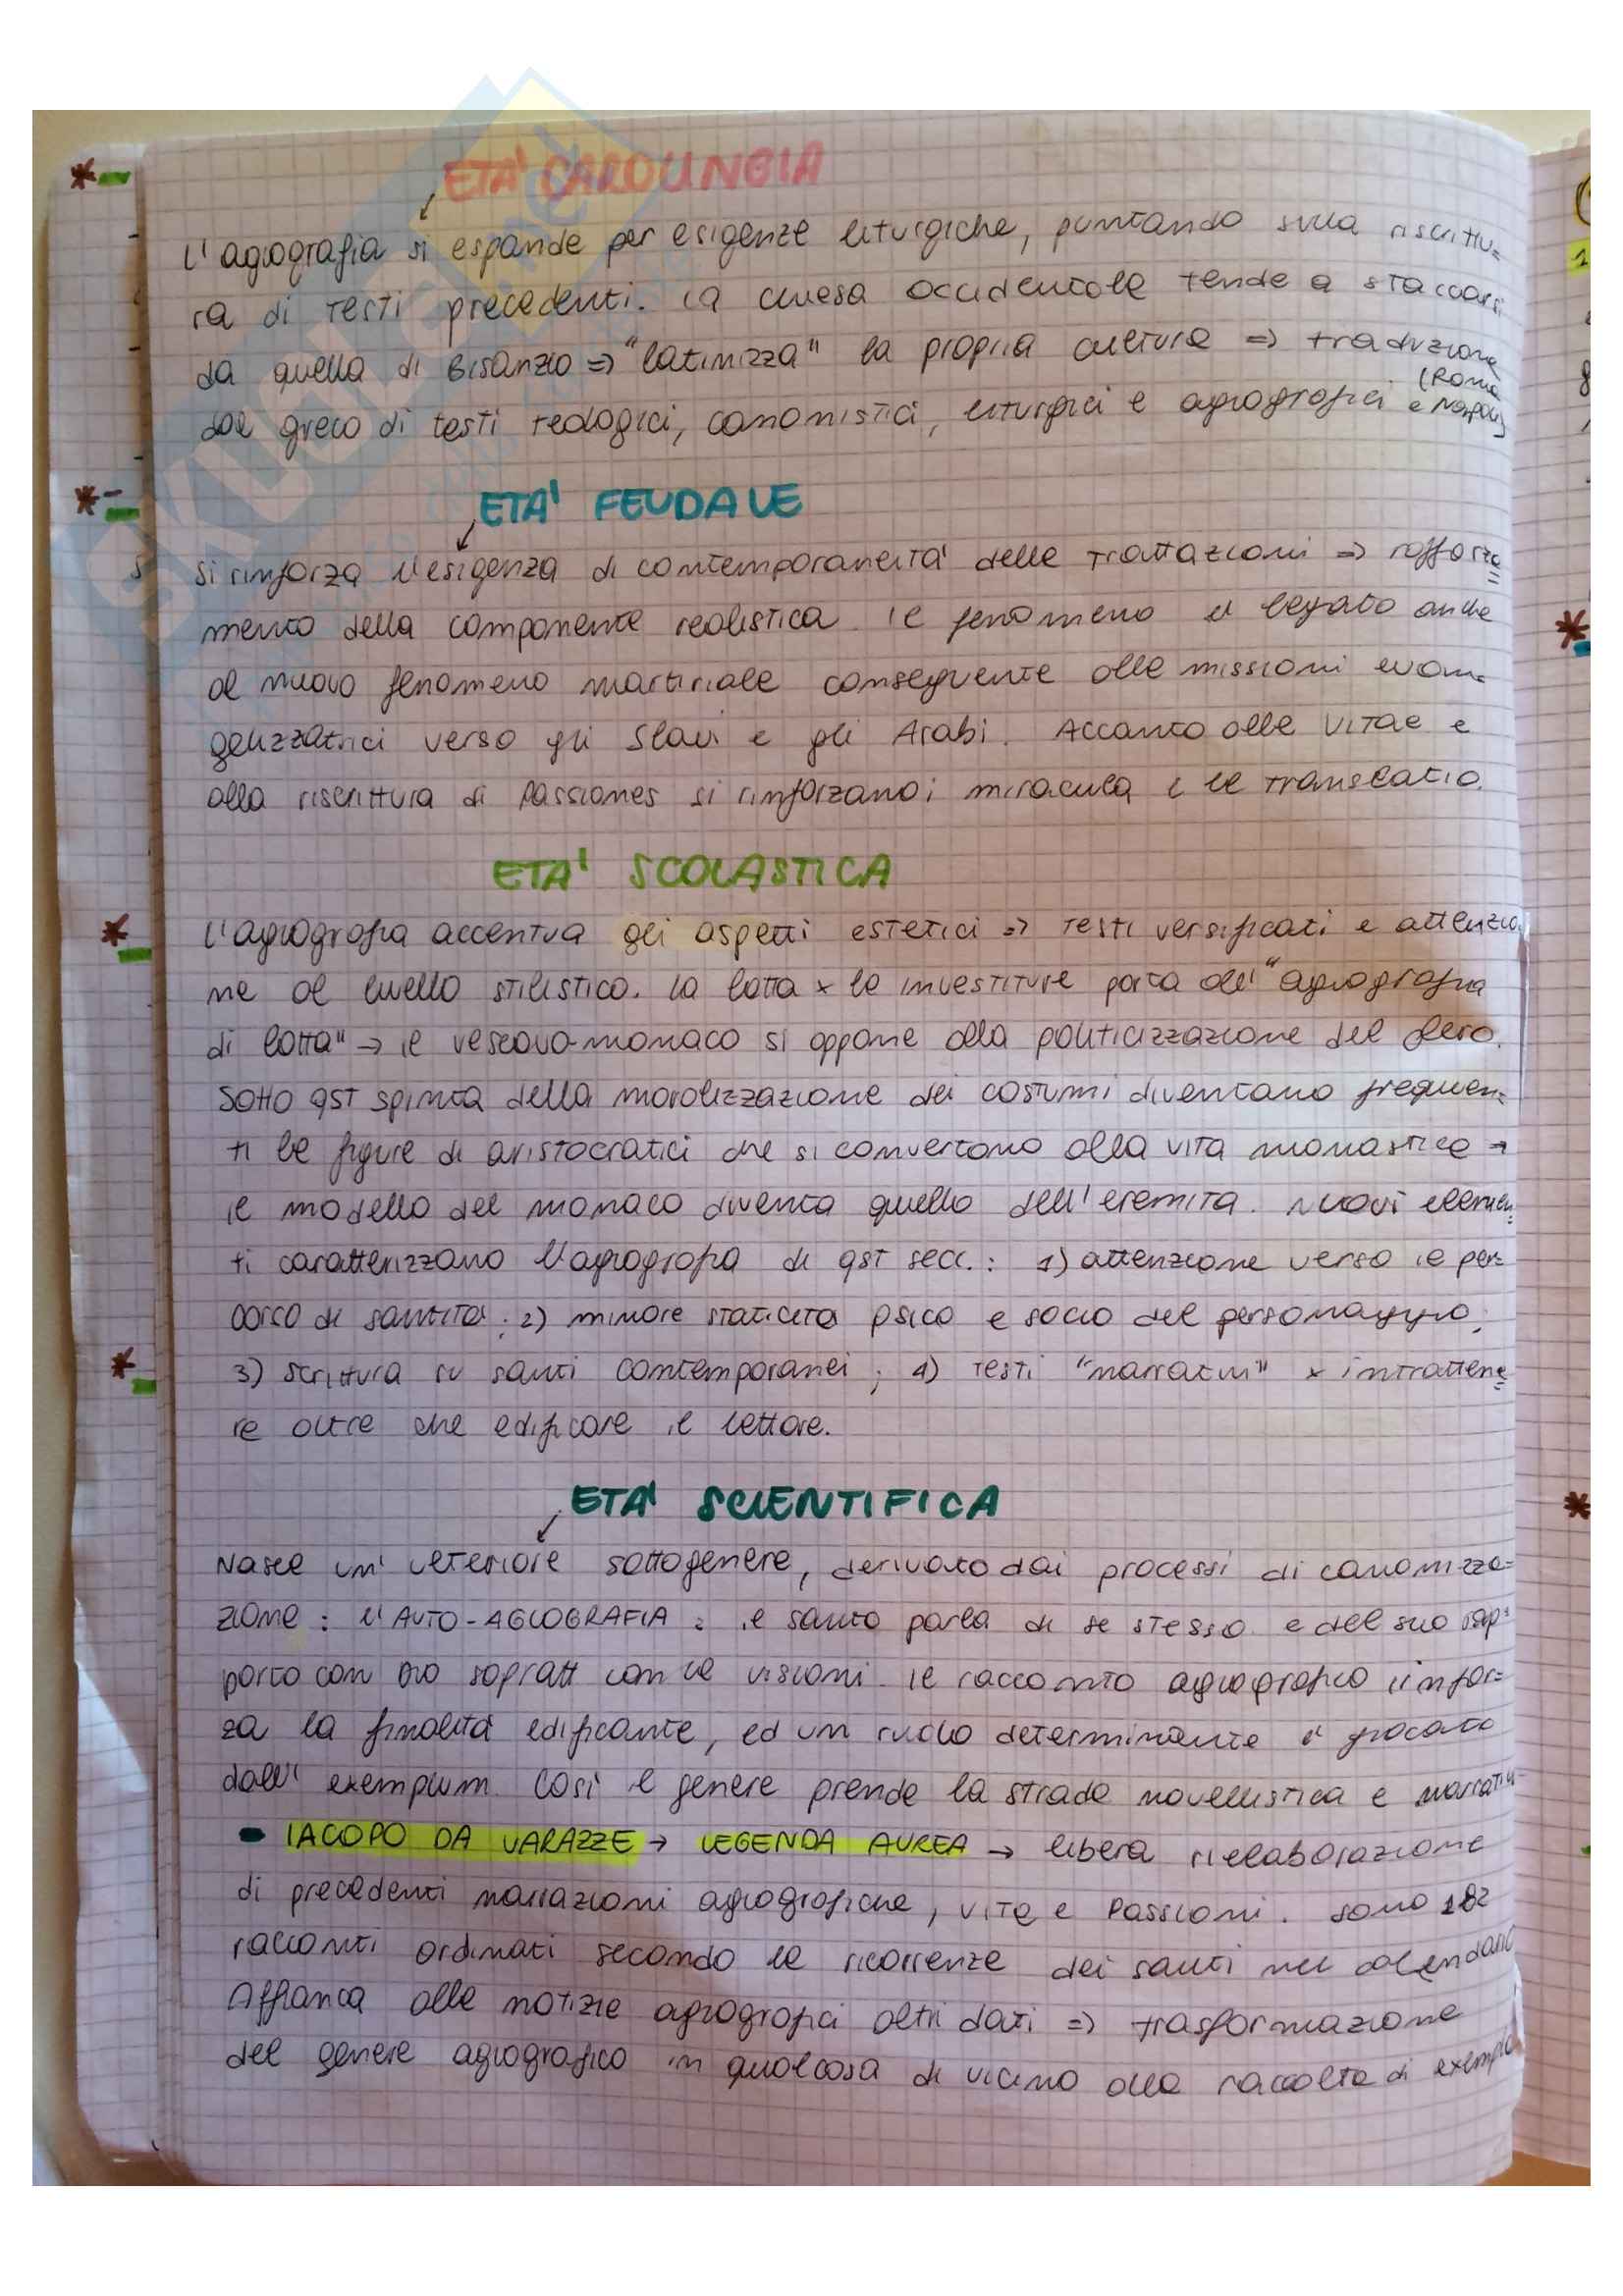 ETA' CAROLINGIA
L'agiografia si espande per esigenze liturgiche, puntando sulla riscrittu=
ra di testi precedenti. La chiesa occidentale tende a staccarsi
da quella di Bisanzio => "latinizza" la propria cultura => traduzione
dal greco di testi teologici, canonistici, liturgici e agiografici (Roma
e Napoli)
ETA' FEUDALE
Si rinforza l'esigenza di contemporaneità delle trattazioni => rafforza=
mento della componente realistica. Il fenomeno è legato anche
al nuovo fenomeno martiriale conseguente alle missioni evan=
gelizzatrici verso gli Slavi e gli Arabi. Accanto alle vitae e
alla riscrittura di Passiones si rinforzano i miracula e le translatio.
ETA' SCOLASTICA
L'agiografia accentua gli aspetti estetici => testi versificati e attenzio
ne al livello stilistico. La lotta x le investiture porta all' "agiografia
di lotta" → il vescovo-monaco si oppone alla politicizzazione del clero.
Sotto qst spinta della moralizzazione dei costumi diventano frequen=
ti le figure di aristocratici che si convertono alla vita monastica →
il modello del monaco diventa quello dell'eremita. Nuovi elemen=
ti caratterizzano l'agiografia di qst secc.: 1) attenzione verso il per=
corso di santità; 2) minore staticità psico e socio del personaggio;
3) scrittura su santi contemporanei; 4) testi "narrativi" x intrattene=
re oltre che edificare il lettore.
ETA' SCIENTIFICA
Nasce un' ulteriore sottogenere, derivato dai processi di canonizza=
zione: l'AUTO-AGIOGRAFIA: il santo parla di se stesso e del suo rap=
porto con Dio sopratt con le visioni. Il racconto agiografico rinfor=
za la finalità edificante, ed un ruolo determinante è giocato
dall' exemplum. Così il genere prende la strada novellistica e narrativ
IACOPO DA VARAZZE → LEGENDA AUREA → libera rielaborazione
di precedenti narrazioni agiografiche, vite e Passioni. Sono 182
racconti ordinati secondo le ricorrenze dei santi nel calendario
Affianca alle notizie agiografici altri dati => trasformazione
del genere agiografico in qualcosa di vicino alla raccolta di exempla